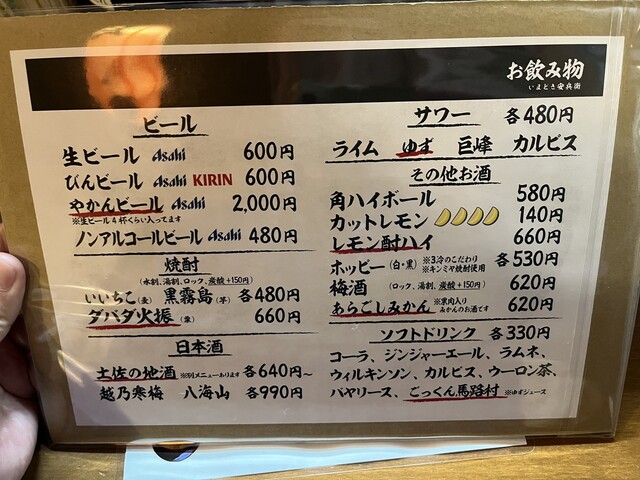 お飲み物
いまどき安兵衛
ビール
生ビール Asahi 600円
びんビール Asahi KIRIN 600円
やかんビール Asahi 2,000円
※生ビール4杯くらい入ってます
ノンアルコールビール Asahi 480円
焼酎
(水割、湯割、ロック、炭酸+150円)
いいちこ(麦) 黒霧島(芋) 各480円
ダバダ火振(栗) 660円
日本酒
土佐の地酒 ※別メニューあります 各640円~
越乃寒梅 八海山 各990円
サワー 各480円
ライム ゆず 巨峰 カルピス
その他お酒
角ハイボール 580円
カットレモン 140円
レモン酎ハイ 660円
ホッピー(白・黒) ※3冷のこだわり ※キンミヤ焼酎使用 各530円
梅酒 (ロック、湯割、炭酸+150円) 620円
あらごしみかん ※果肉入り みかんのお酒です 620円
ソフトドリンク 各330円
コーラ、ジンジャーエール、ラムネ、
ウィルキンソン、カルピス、ウーロン茶、
バヤリース、ごっくん馬路村 ※ゆずジュース